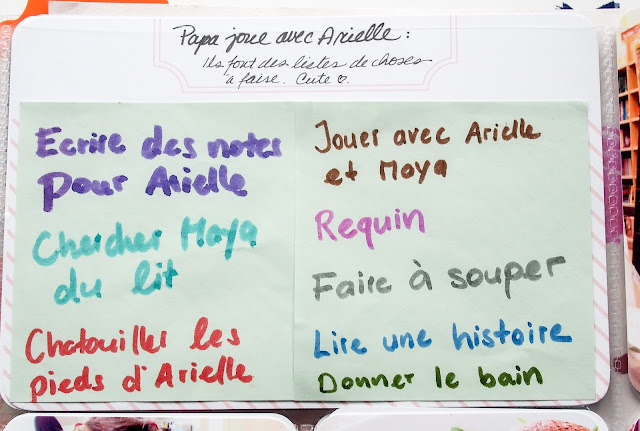 Papa joue avec Arielle :
Ils font des listes de choses
à faire. Cute ♡.
Ecrire des notes
pour Arielle
Chercher Maya
du lit
Chatouiller les
pieds d'Arielle
Jouer avec Arielle
et Maya
Requin
Faire à souper
Lire une histoire
Donner le bain